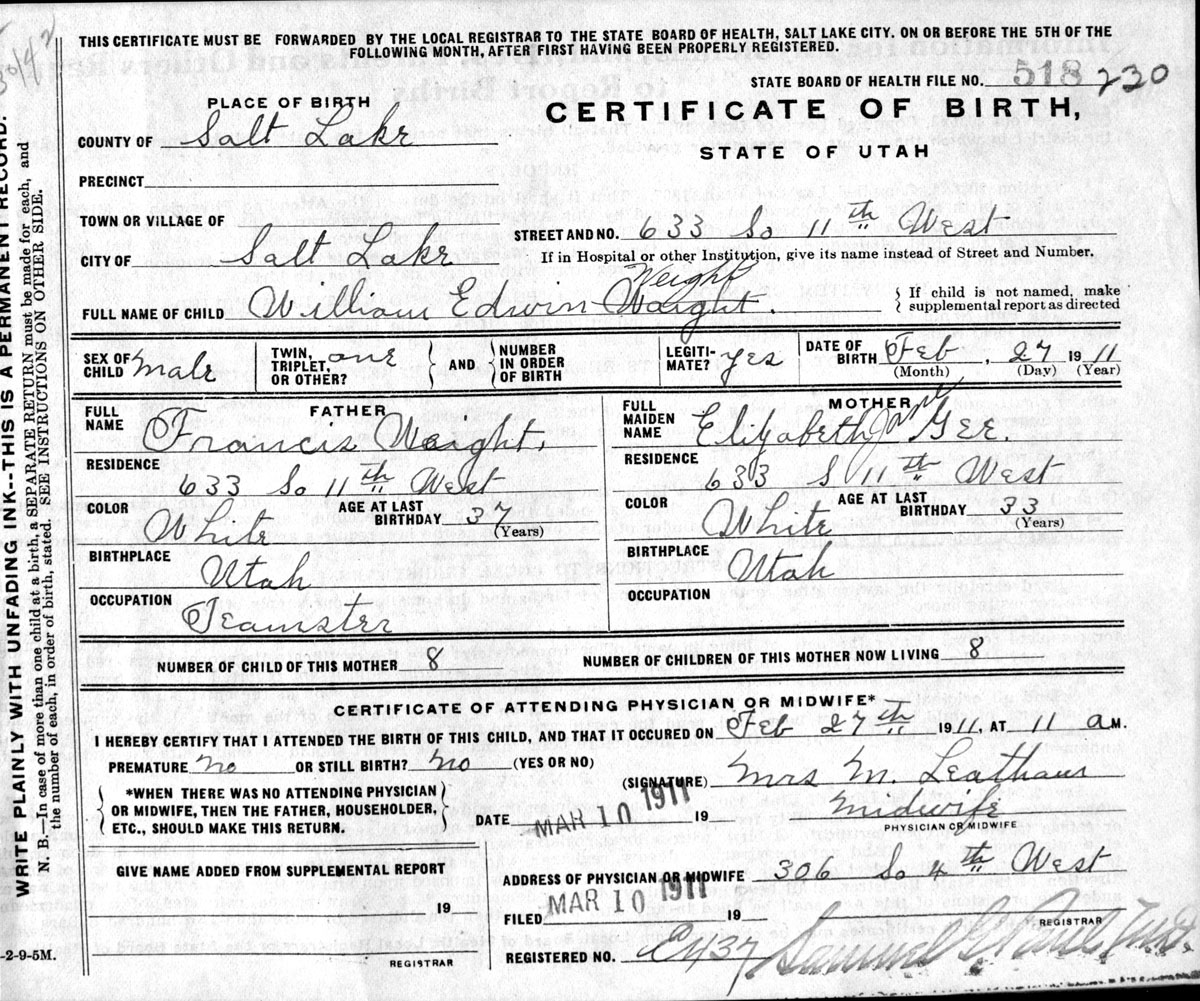 THIS CERTIFICATE MUST BE FORWARDED BY THE LOCAL REGISTRAR TO THE STATE BOARD OF HEALTH, SALT LAKE CITY. ON OR BEFORE THE 5TH OF THE
FOLLOWING MONTH, AFTER FIRST HAVING BEEN PROPERLY REGISTERED.
STATE BOARD OF HEALTH FILE NO. 518 230
PLACE OF BIRTH
CERTIFICATE OF BIRTH,
STATE OF UTAH
COUNTY OF Salt Lake
PRECINCT
TOWN OR VILLAGE OF
STREET AND NO. 633 So 11th West
CITY OF Salt Lake
If in Hospital or other Institution, give its name instead of Street and Number.
Weight
FULL NAME OF CHILD William Edwin Waight.
{ If child is not named, make
supplemental report as directed
SEX OF CHILD Male
TWIN, TRIPLET, OR OTHER? one
AND
NUMBER IN ORDER OF BIRTH
LEGITI- MATE? Yes
DATE OF BIRTH Feb, 27 1911
(Month) (Day) (Year)
FATHER
FULL NAME Francis Weight.
RESIDENCE
633 So 11th West
COLOR White
AGE AT LAST BIRTHDAY 37
(Years)
BIRTHPLACE
Utah
OCCUPATION
Teamster
MOTHER
FULL MAIDEN NAME Elizabeth Jane Gee.
RESIDENCE
633 S 11th West
COLOR White
AGE AT LAST BIRTHDAY 33
(Years)
BIRTHPLACE
Utah
OCCUPATION
NUMBER OF CHILD OF THIS MOTHER 8
NUMBER OF CHILDREN OF THIS MOTHER NOW LIVING 8
CERTIFICATE OF ATTENDING PHYSICIAN OR MIDWIFE*
I HEREBY CERTIFY THAT I ATTENDED THE BIRTH OF THIS CHILD, AND THAT IT OCCURED ON Feb 27th 1911, AT 11 A M.
PREMATURE No OR STILL BIRTH? No (YES OR NO)
(SIGNATURE) Mrs M. Leatham
Midwife
PHYSICIAN OR MIDWIFE
*WHEN THERE WAS NO ATTENDING PHYSICIAN
OR MIDWIFE, THEN THE FATHER, HOUSEHOLDER,
ETC., SHOULD MAKE THIS RETURN.
DATE MAR 10 1911 19
GIVE NAME ADDED FROM SUPPLEMENTAL REPORT
19
REGISTRAR
ADDRESS OF PHYSICIAN OR MIDWIFE 306 So 4th West
FILED MAR 10 1911 19
REGISTRAR
REGISTERED NO. a437 Samuel G. Paul
WRITE PLAINLY WITH UNFADING INK--THIS IS A PERMANENT RECORD.
N. B.—In case of more than one child at a birth, a SEPARATE RETURN must be made for each, and
the number of each, in order of birth, stated. SEE INSTRUCTIONS ON OTHER SIDE.
-2-9-5M.